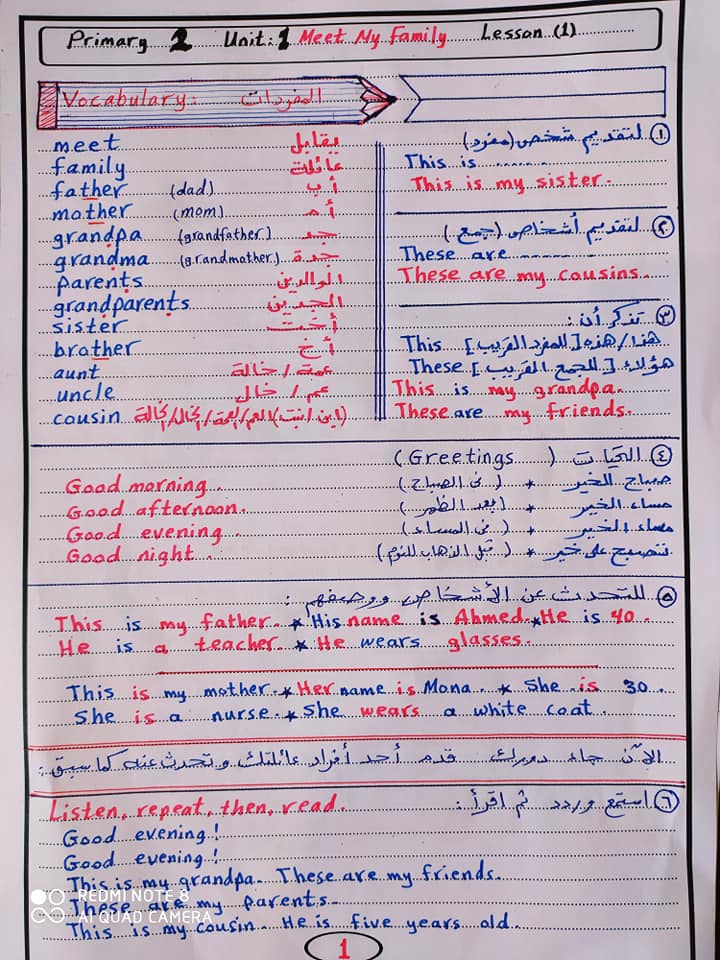 Primary 2 Unit: 1 Meet My Family Lesson (1)
Vocabulary: المفردات
meet يقابل
family عائلة
father (dad) أب
mother (mom) أم
grandpa (grandfather) جد
grandma (grandmother) جدة
parents الوالدين
grandparents الجدين
sister أخت
brother أخ
aunt عمة / خالة
uncle عم / خال
cousin (ابن / ابنت) العم / العمة / الخال / الخالة
١ لتقديم شخص (مفرد)
This is ........
This is my sister.
٢ لتقديم أشخاص (جمع)
These are ........
These are my cousins.
٣ تذكر أن :
This هذا / هذه [للمفرد القريب]
These هؤلاء [للجمع القريب]
This is my grandpa.
These are my friends.
٤ التحيات (Greetings)
Good morning. صباح الخير * (فى الصباح)
Good afternoon. مساء الخير * (بعد الظهر)
Good evening. مساء الخير * (فى المساء)
Good night. تصبح على خير * (قبل الذهاب للنوم)
٥ للتحدث عن الأشخاص ووصفهم :
This is my father. * His name is Ahmed. * He is 40.
He is a teacher. * He wears glasses.
This is my mother. * Her name is Mona. * She is 30.
She is a nurse. * She wears a white coat.
الآن جاء دورك قدم أحد أفراد عائلتك وتحدث عنه كما سبق :
٦ استمع وردد ثم اقرأ :
Listen, repeat, then, read.
Good evening!
Good evening!
This is my grandpa. These are my friends.
These are my parents.
This is my cousin. He is five years old.
REDMI NOTE 8
AI QUAD CAMERA
1